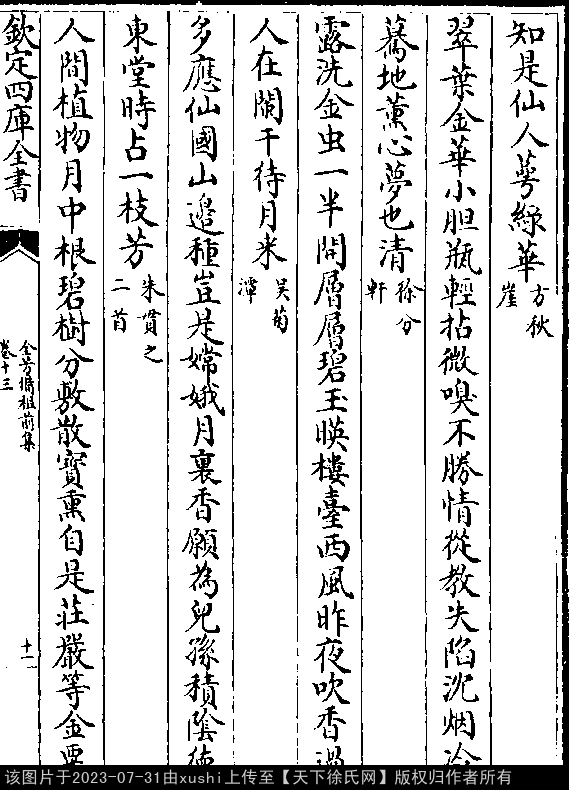 知是仙人萼綠華方秋崖
翠葉金華小胆瓶輕拈微嗅不勝情從教失陷沈烟冷
驀地薰心夢也清徐分軒
露洗金虫一半開層層碧玉映樓臺西風昨夜吹香過
人在闌干待月来吴菊潭
多應仙國山邉種豈是嫦娥月裏香願為兒孫積隂徳
東堂時占一枝芳朱貫之二首
人間植物月中根碧樹分敷散寳熏自是莊嚴等金粟
欽定四庫全書
全芳備祖前集
卷十三
十一
该图片于2023-07-31由xushi上传至【天下徐氏网】版权归作者所有